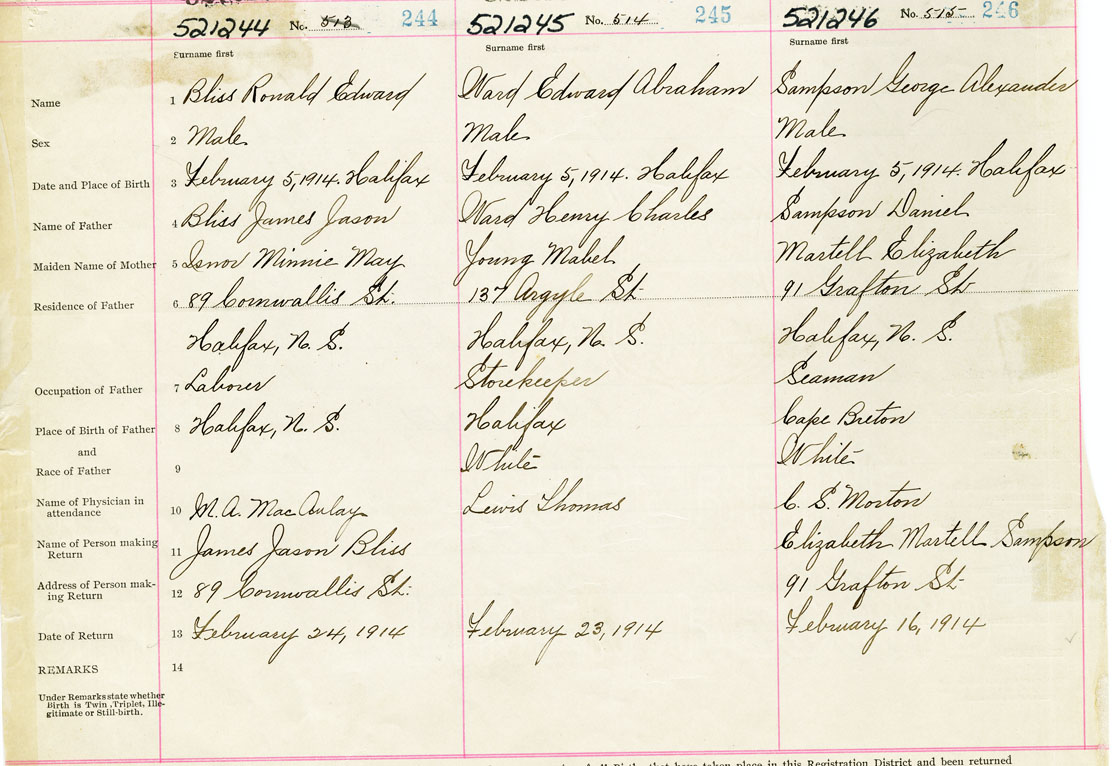 521244 No. 513 244 521245 No. 514 245 521246 No. 515 246
Surname first Surname first Surname first
Name 1 Bliss Ronald Edward Ward Edward Abraham Sampson George Alexander
Sex 2 Male Male Male
Date and Place of Birth 3 February 5, 1914. Halifax February 5, 1914. Halifax February 5, 1914. Halifax
Name of Father 4 Bliss James Jason Ward Henry Charles Sampson Daniel
Maiden Name of Mother 5 Isnor Minnie May Young Mabel Martell Elizabeth
Residence of Father 6 89 Cornwallis St. 137 Argyle St 91 Grafton St
Halifax, N. S. Halifax, N. S. Halifax, N. S.
Occupation of Father 7 Laborer Storekeeper Seaman
Place of Birth of Father 8 Halifax, N. S. Halifax Cape Breton
and
Race of Father 9 White White
Name of Physician in
attendance 10 M. A. MacAulay Lewis Thomas C. S. Morton
Name of Person making
Return 11 James Jason Bliss Elizabeth Martell Sampson
Address of Person mak-
ing Return 12 89 Cornwallis St. 91 Grafton St
Date of Return 13 February 24, 1914 February 23, 1914 February 16, 1914
REMARKS 14
Under Remarks state whether
Birth is Twin, Triplet, Ille-
gitimate or Still-birth.
that have taken place in this Registration District and been returned